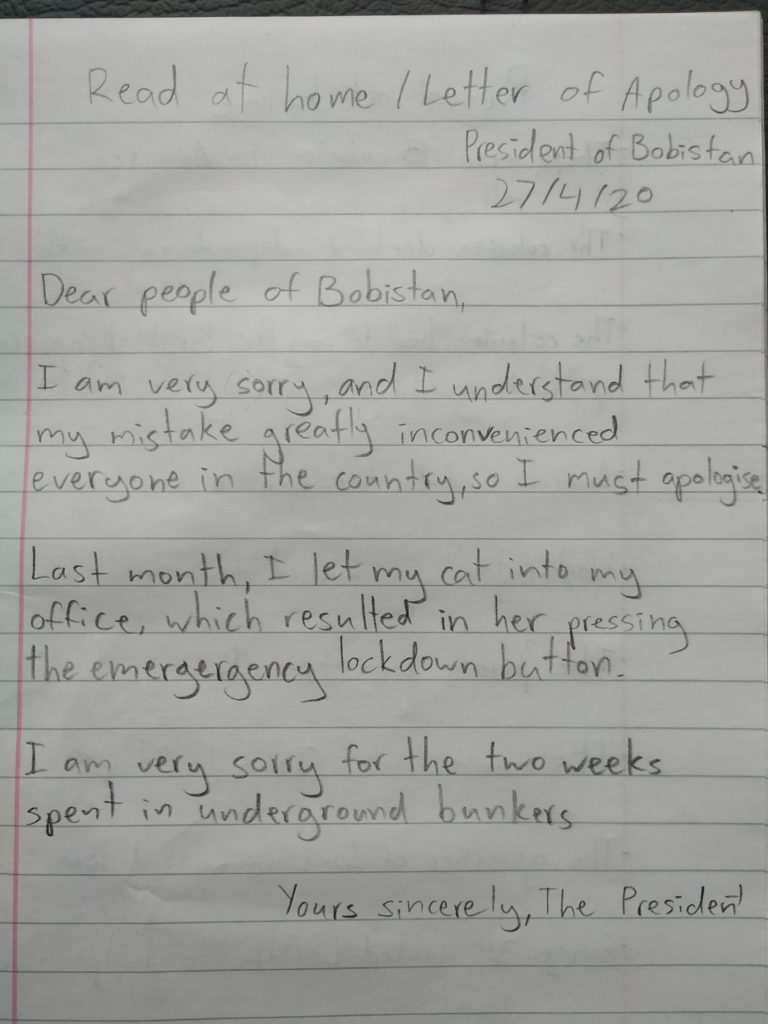 Read at home / Letter of Apology
President of Bobistan
27/4/20
Dear people of Bobistan,
I am very sorry, and I understand that
my mistake greatly inconvenienced
everyone in the country, so I must apologise
Last month, I let my cat into my
office, which resulted in her pressing
the emergergency lockdown button.
I am very sorry for the two weeks
spent in underground bunkers
Yours sincerely, The President